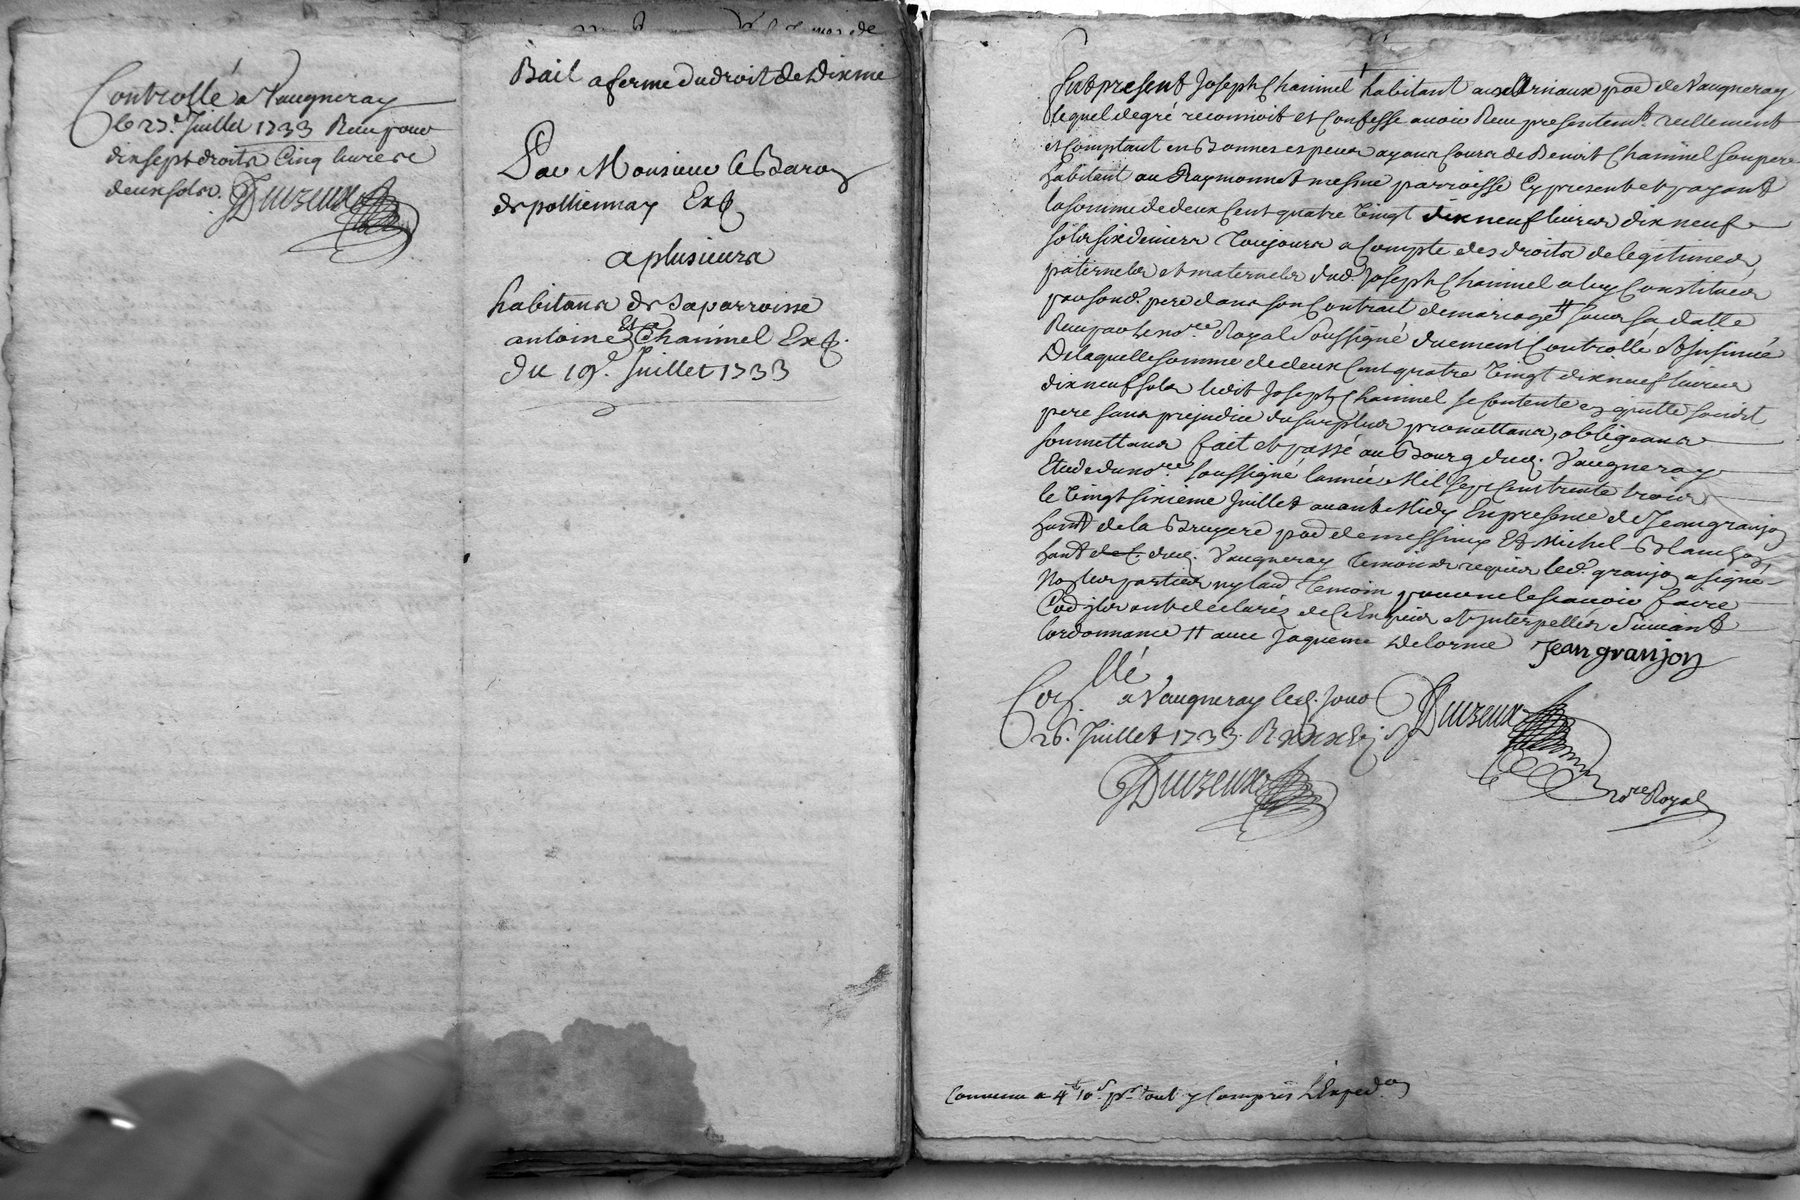 Controllé a Vaugneray
le 27.e Juillet 1733 Receu pour
dix sept droits Cinq livres et
deux sols. Duvzeux
Bail a ferme du droit de dixme
Par Monsieur le Baron
de polliennay Exp.
a plusieurs
habitans de sa parroisse
antoine Chainnel Et Exp.
du 19e. Juillet 1733
Fut present Joseph Chainnel habitant aux Arniaux pssé de Vaugneray
lequel de gré reconnoit et Confesse avoir Receu presentemt. reellement
et Comptant en Bonnes especes ayans Cours de Benoit Chainnel son pere
habitant au Raymonnet mesme parroisse Cy present et payant
la somme de deux Cent quatre vingt dix neuf livres dix neuf
sols six deniers Toujours a Compte des droits de legitimes
paternels et maternels dud. Joseph Chainnel a luy Constitués
par sond. pere dans son Contrait de mariage # sous sa datte
Receu par le nore Royal Soussigné duement Controllé et Insinué
De laquelle somme de deux Cent quatre vingt dix neuf livres
dix neuf sols ledit Joseph Chainnel se Contente en quitte sondit
pere sans prejudice du surplus promettans, obligeans
soumettans fait et passé au Bourg dud. Vaugneray
Etude du nore soussigné l'année Mil sept Cent trente trois
le Vingt sixieme Juillet avant Midy En presence de Jean granjon
habt. de la Bruyere psse de messimy Et Michel Blanchon
habt. dud. Vaugneray Temoins requis led. granjon a signé
Non les parties ny laud. Temoin pour ne le scavoir faire
Co'd ils ont declarés de ce Enquis et Interpellés Suivant
l'ordonnance # avec Jaqueme Delorme Jean granjon
Conllé a Vaugneray led. Jour
26. Juillet 1733. R
Duvzeux
Duvzeux
nore Royal
Convenu a 4# 10s. pr. tout y Compris l'Expedon